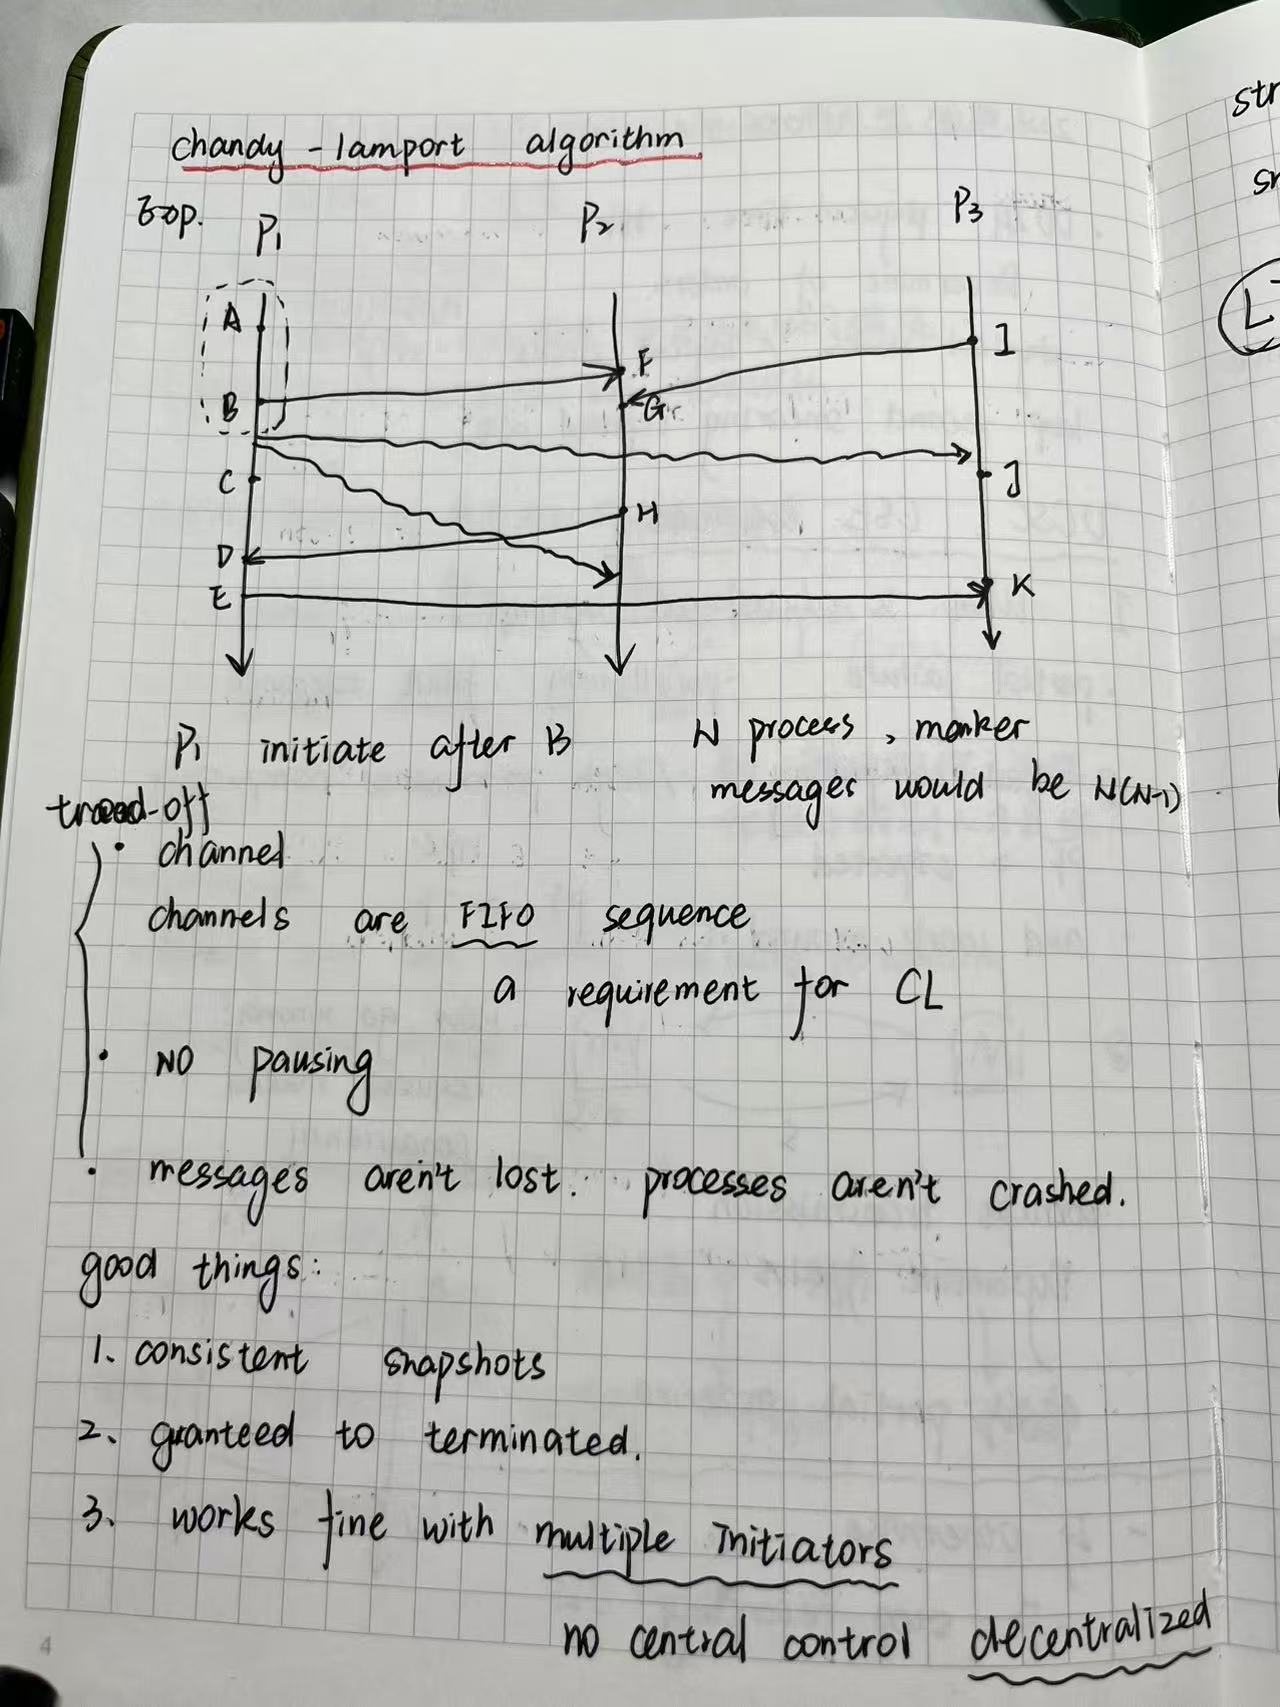 chandy-lamport algorithm
Exp.
P1 P2 P3
A
I
F
B
G
C
J
H
D
E
K
P1 initiate after B
N process, marker
messages would be N(N-1)
trad-off
• channel
channels are FIFO sequence
a requirement for CL
• NO pausing
• messages aren't lost. processes aren't crashed.
good things:
1. consistent snapshots
2. granteed to terminated.
3. works fine with multiple initiators
no central control decentralized
4
str
L